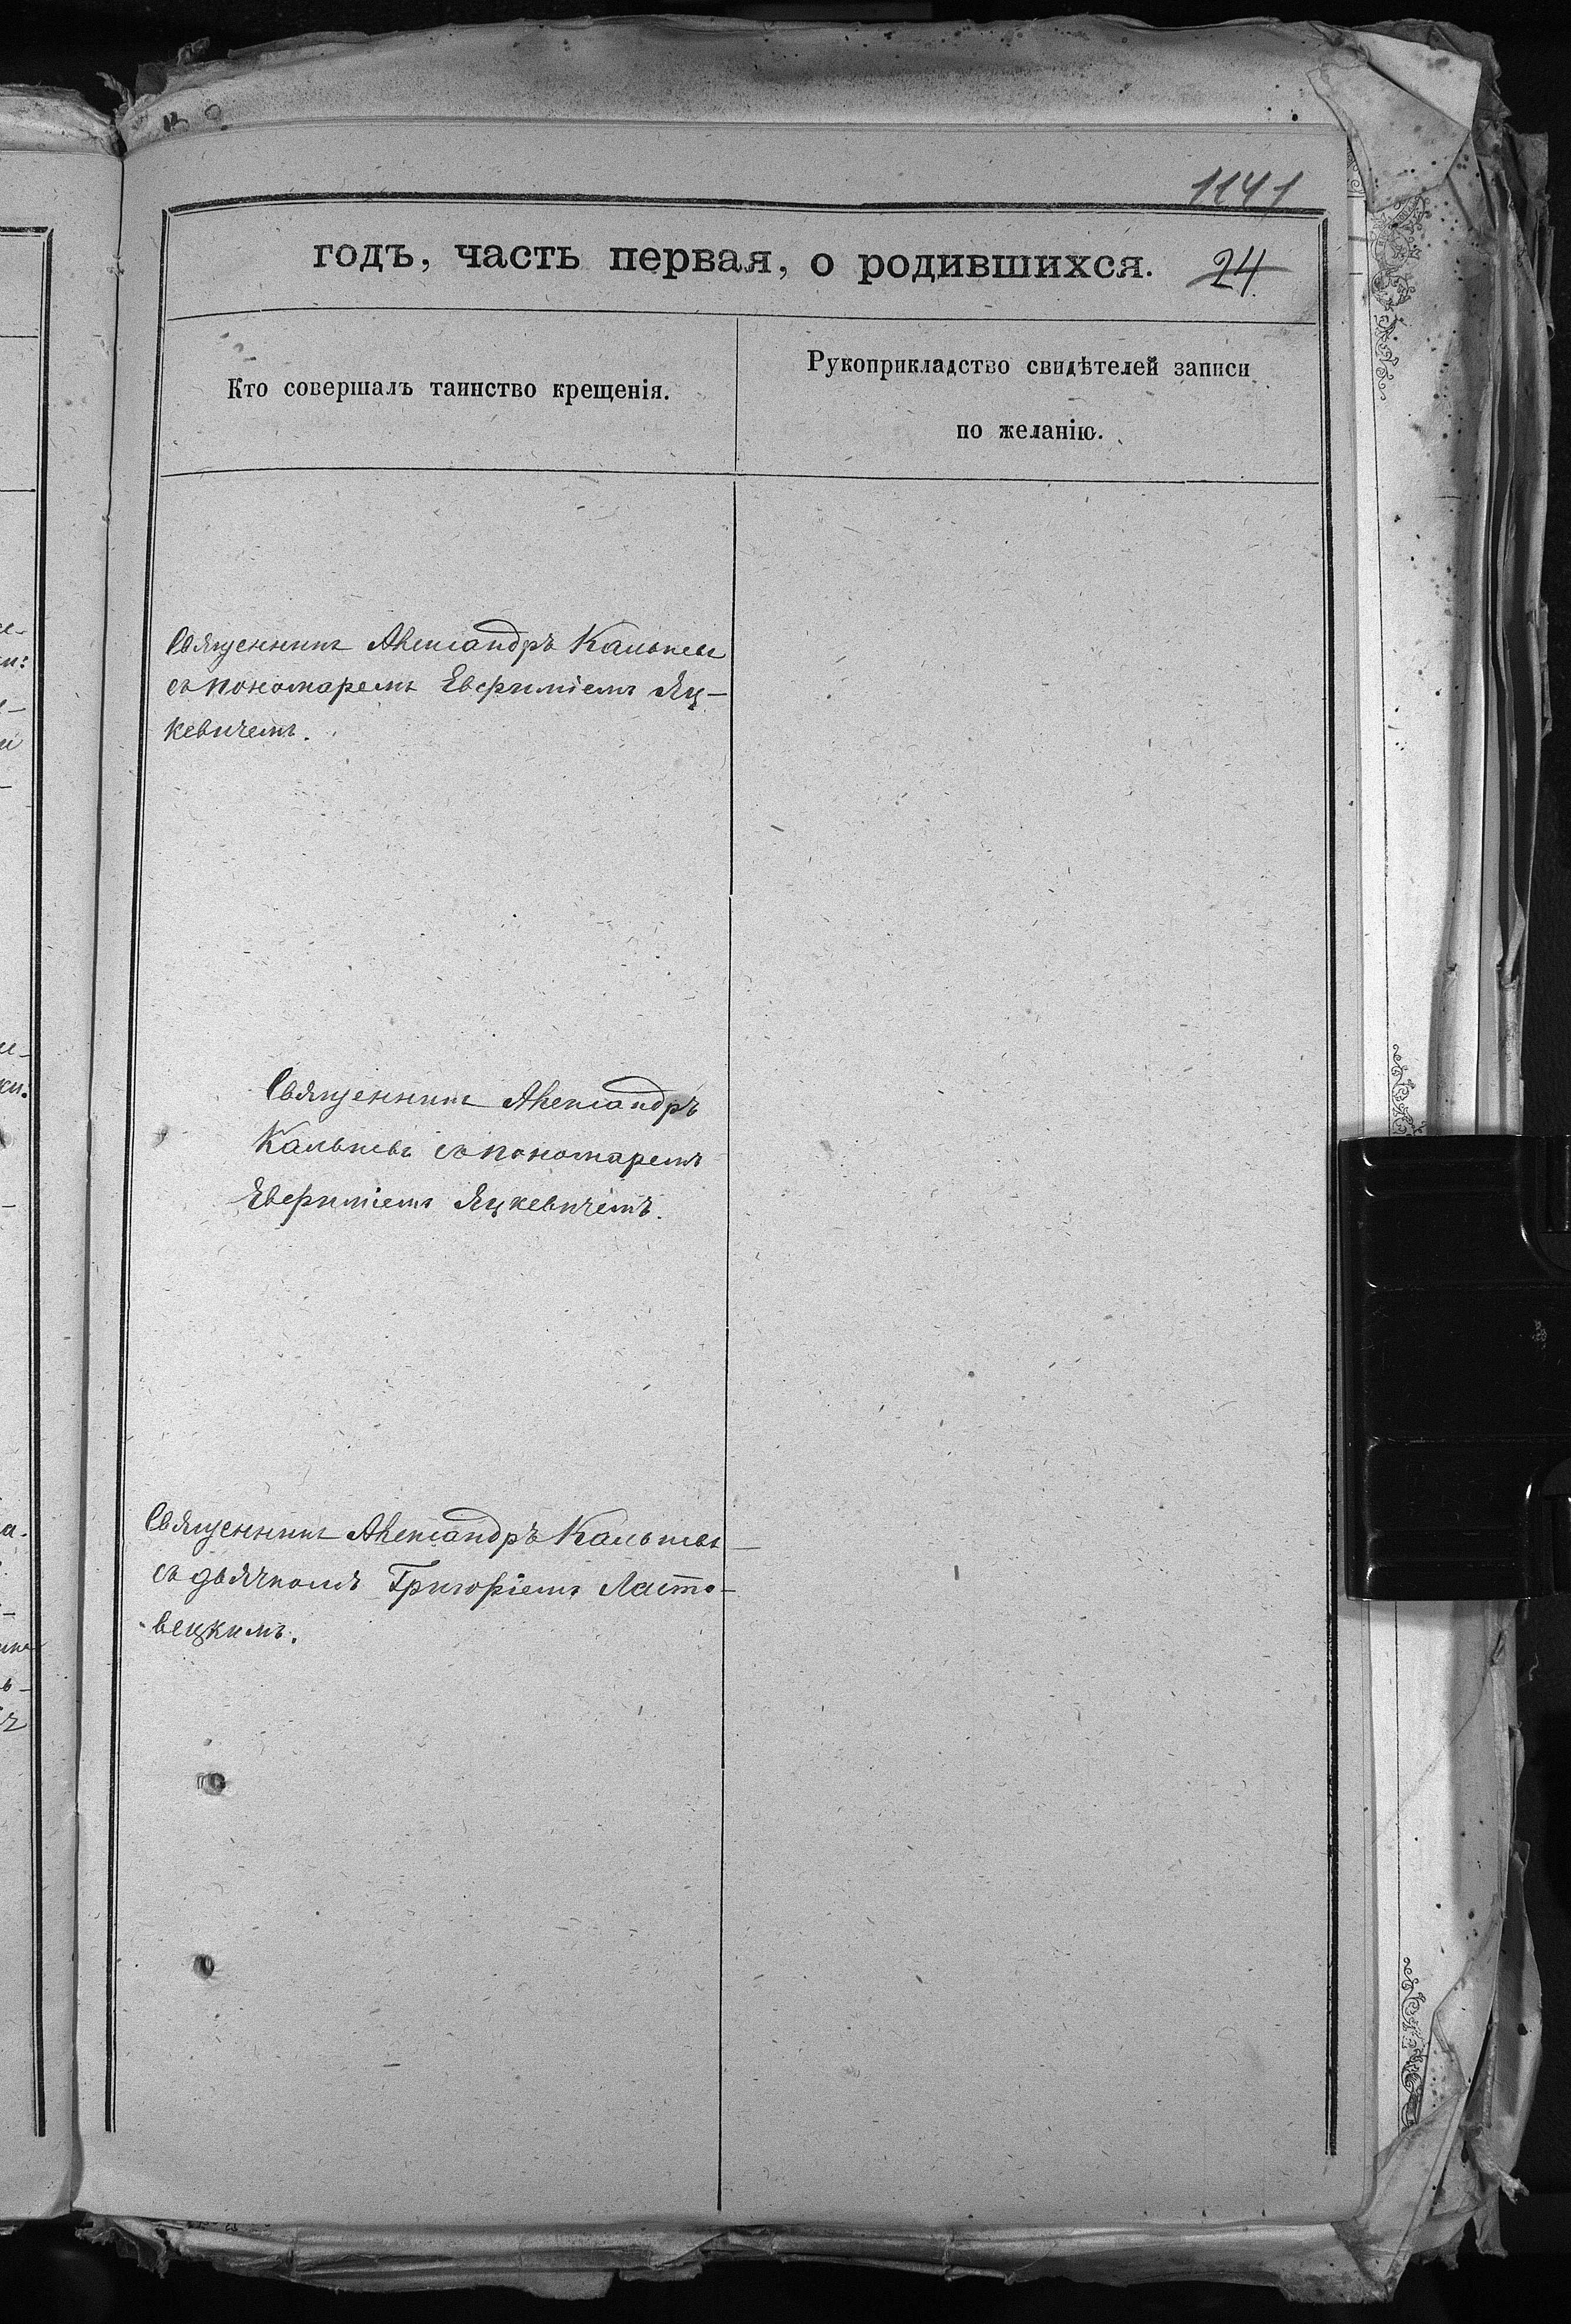 1141
годъ, часть первая, о родившихся. 24
Кто совершалъ таинство крещенія.
Рукоприкладство свидѣтелей записи
по желанію.
Священникъ Александръ
съ пономаремъ Евфиміемъ Яц-
кевичемъ.
Священникъ Александръ
съ пономаремъ
Евфиміемъ Яцкевичемъ.
Священникъ Александръ
съ дьячкомъ Григоріемъ Ласто-
вецкимъ.